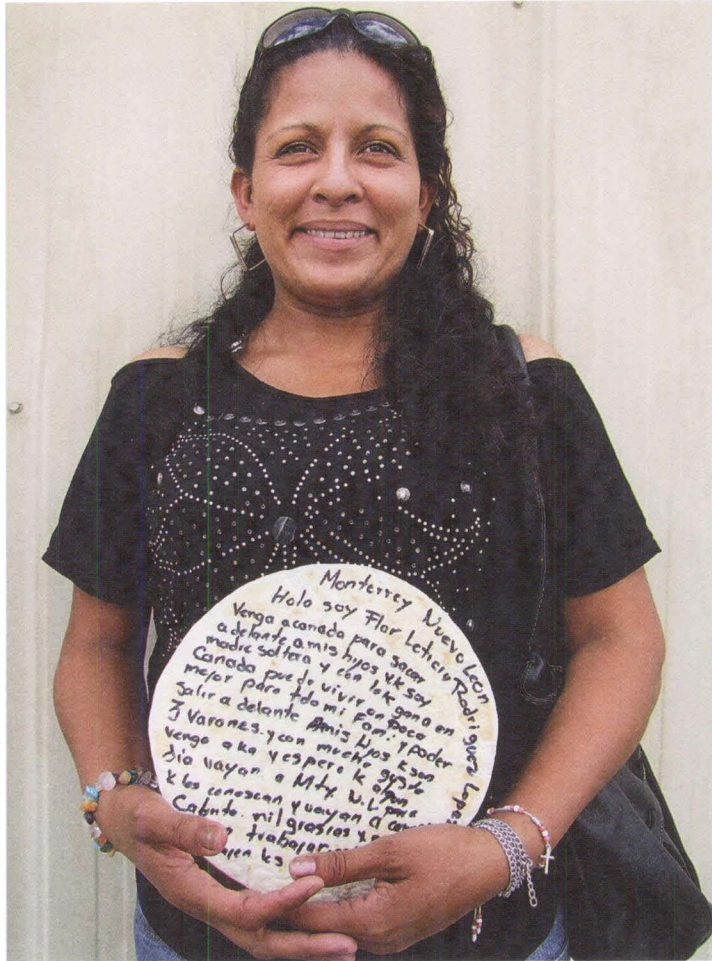 Monterrey Nuevo León
Holo soy Flor Leticia Rodriguez Lopez
Vengo acanada para sacar
adelante amis hijos y k soy
madre soltera y con lo k gano en
Canada puedo vivir un Poco
mejor para tdo mi Fami. y poder
salir a delante Amis Hijos k son
3 Varones. y con mucho gusto
vengo aka y espero k algun
dia vayan a Mty. N.L para
k los conoscan y vayan a
Cabrito. mil grasias x
trabajar
ks